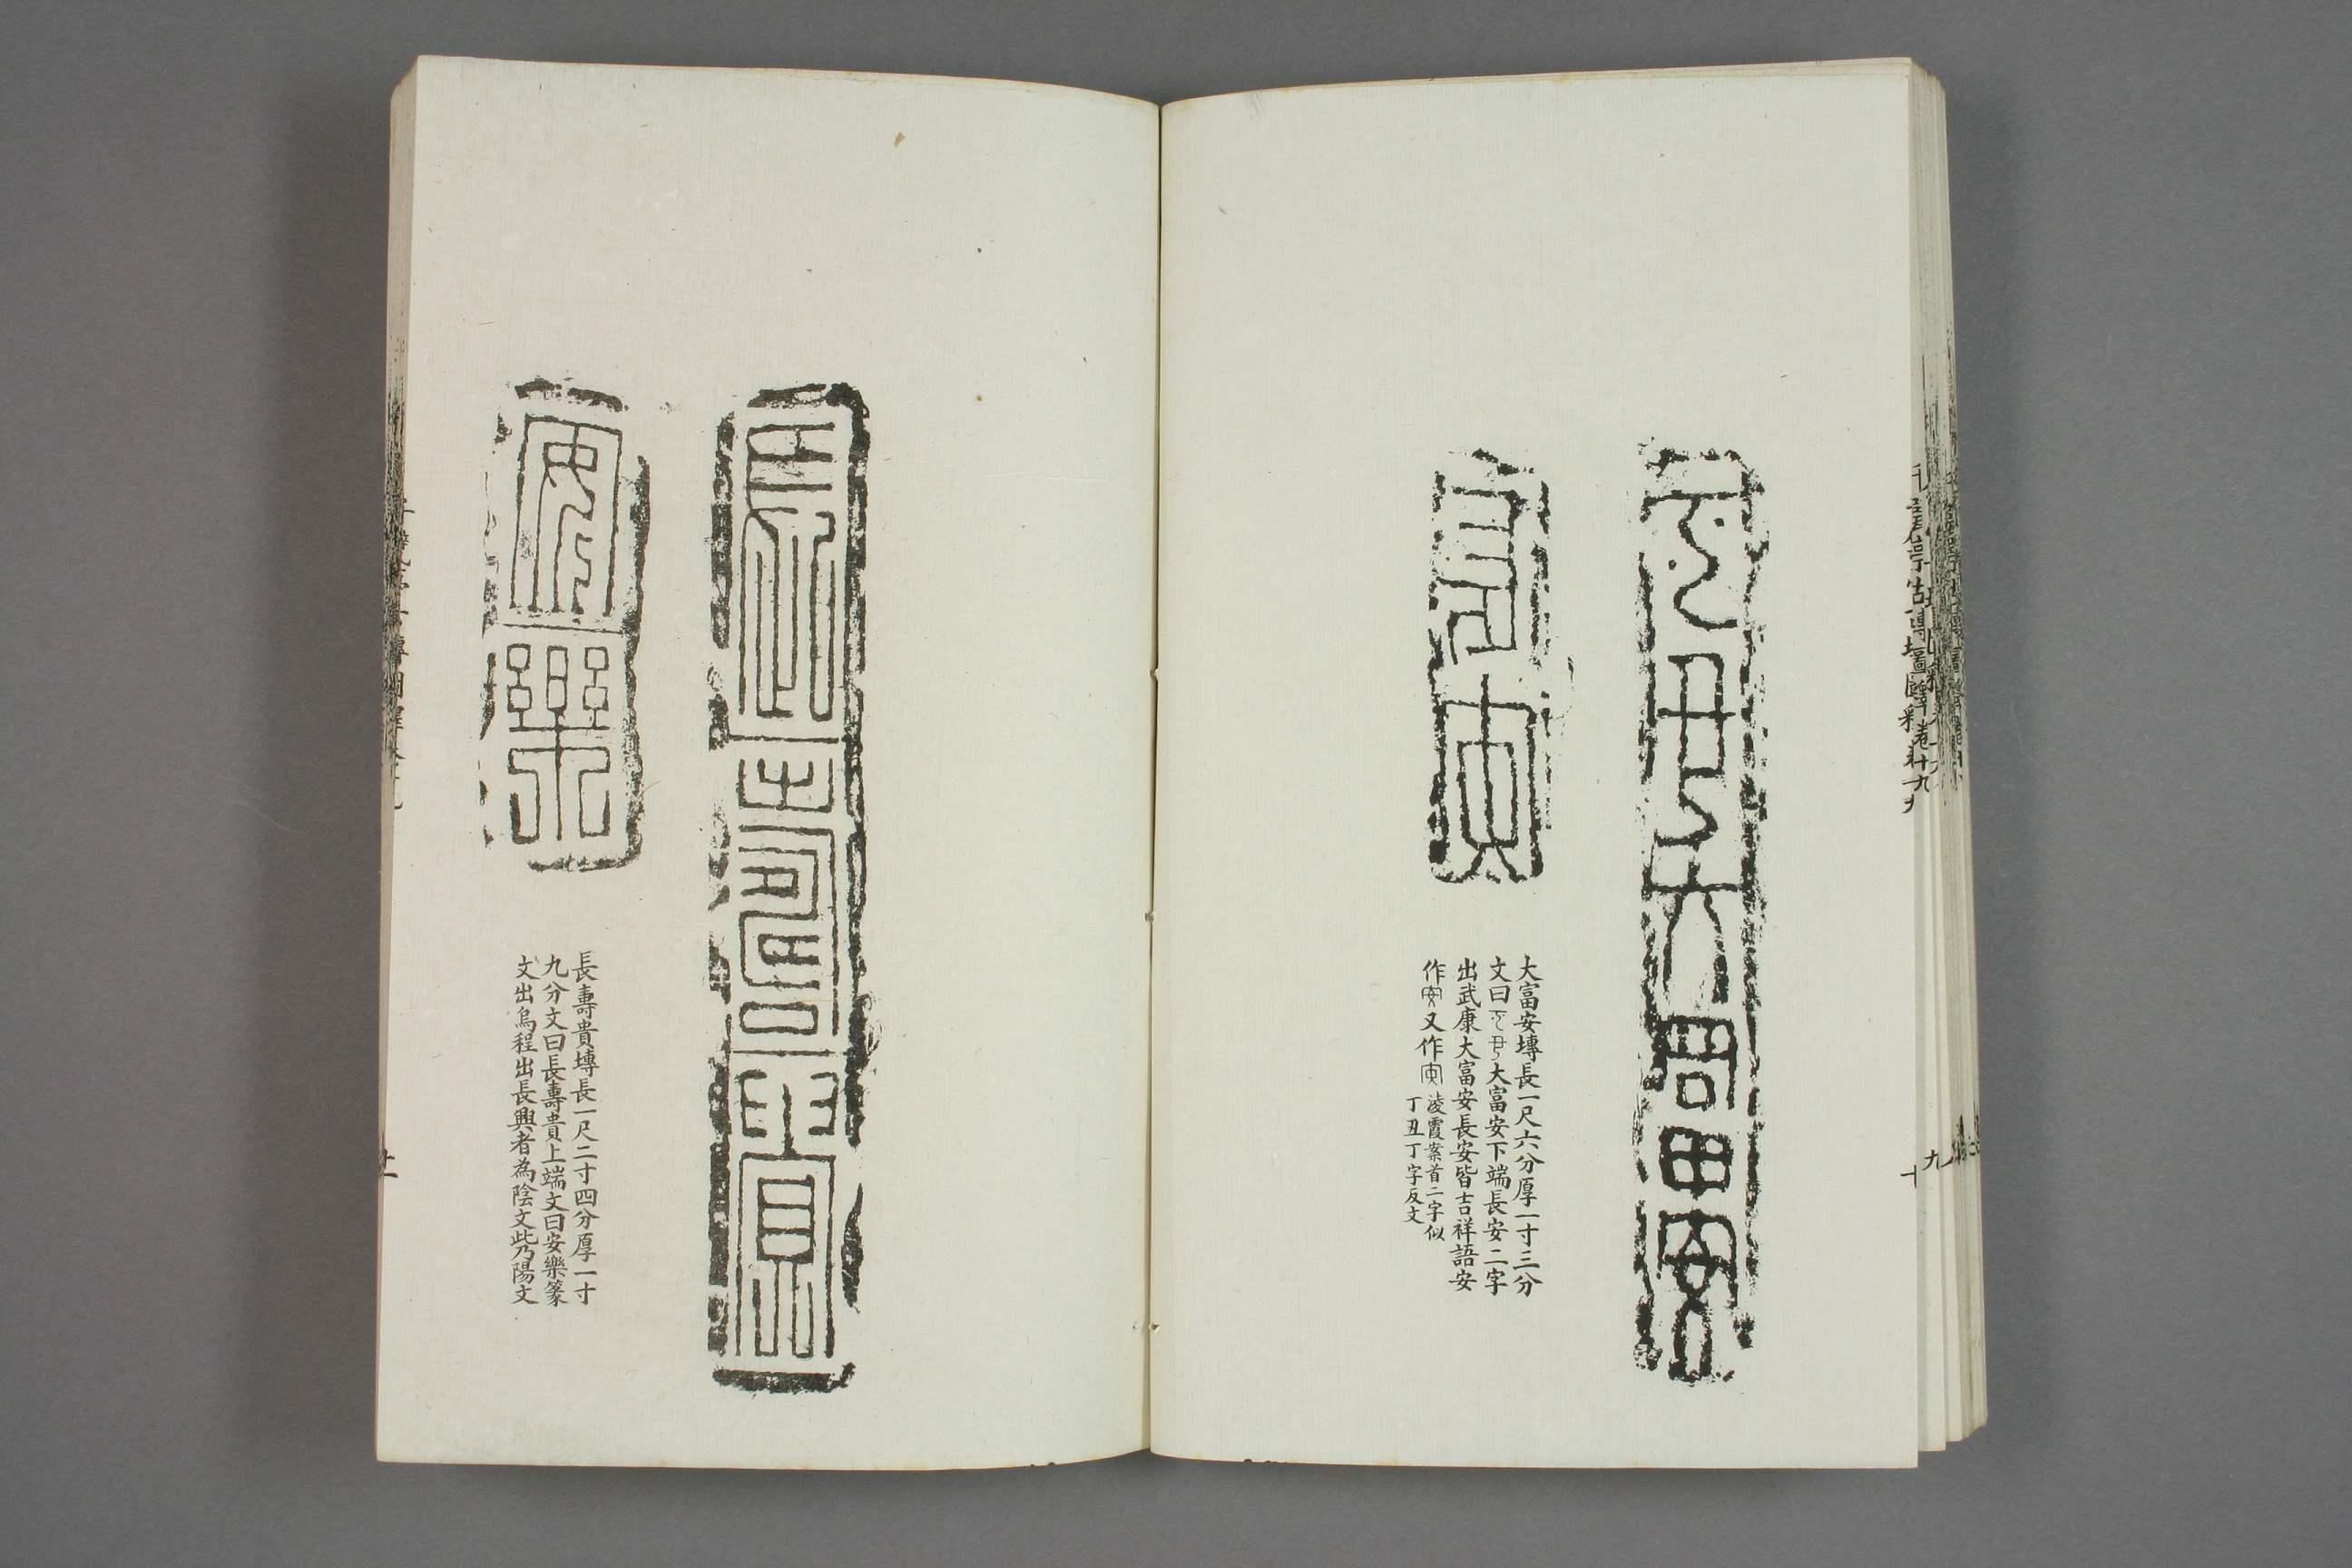 大富安
長安
大富安塼長一尺六分厚一寸三分
文曰大富安下端長安二字
出武康大富安長安皆吉祥語安
作又作
淩霞案首二字似
丁丑丁字反文
長壽貴
安樂
長壽貴塼長一尺二寸四分厚一寸
九分文曰長壽貴上端文曰安樂篆
文出烏程出長興者為陰文此乃陽文
千甓亭古塼圖釋卷十九
十